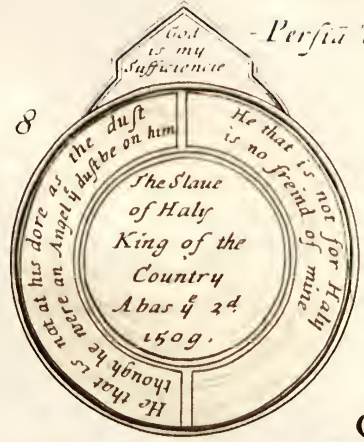 God
is my
Sufficiencie
- Persiā
8
He that is not for Haly
is no freind of mine
He that is not at his dore as the dust
though he were an Angel yᵉ dust be on him
The Slave
of Haly
King of the
Country
Abas yᵉ 2ᵈ.
1509.